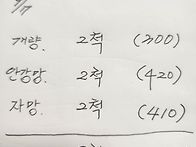 개량. 2척 (300)
안강망. 2척 (420)
자망. 2척 (410)